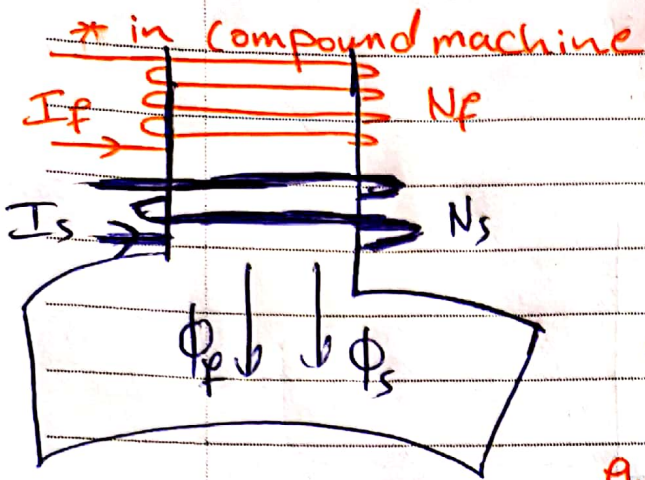 * in Compound machine
If Nf
Is Ns
ϕf ϕs